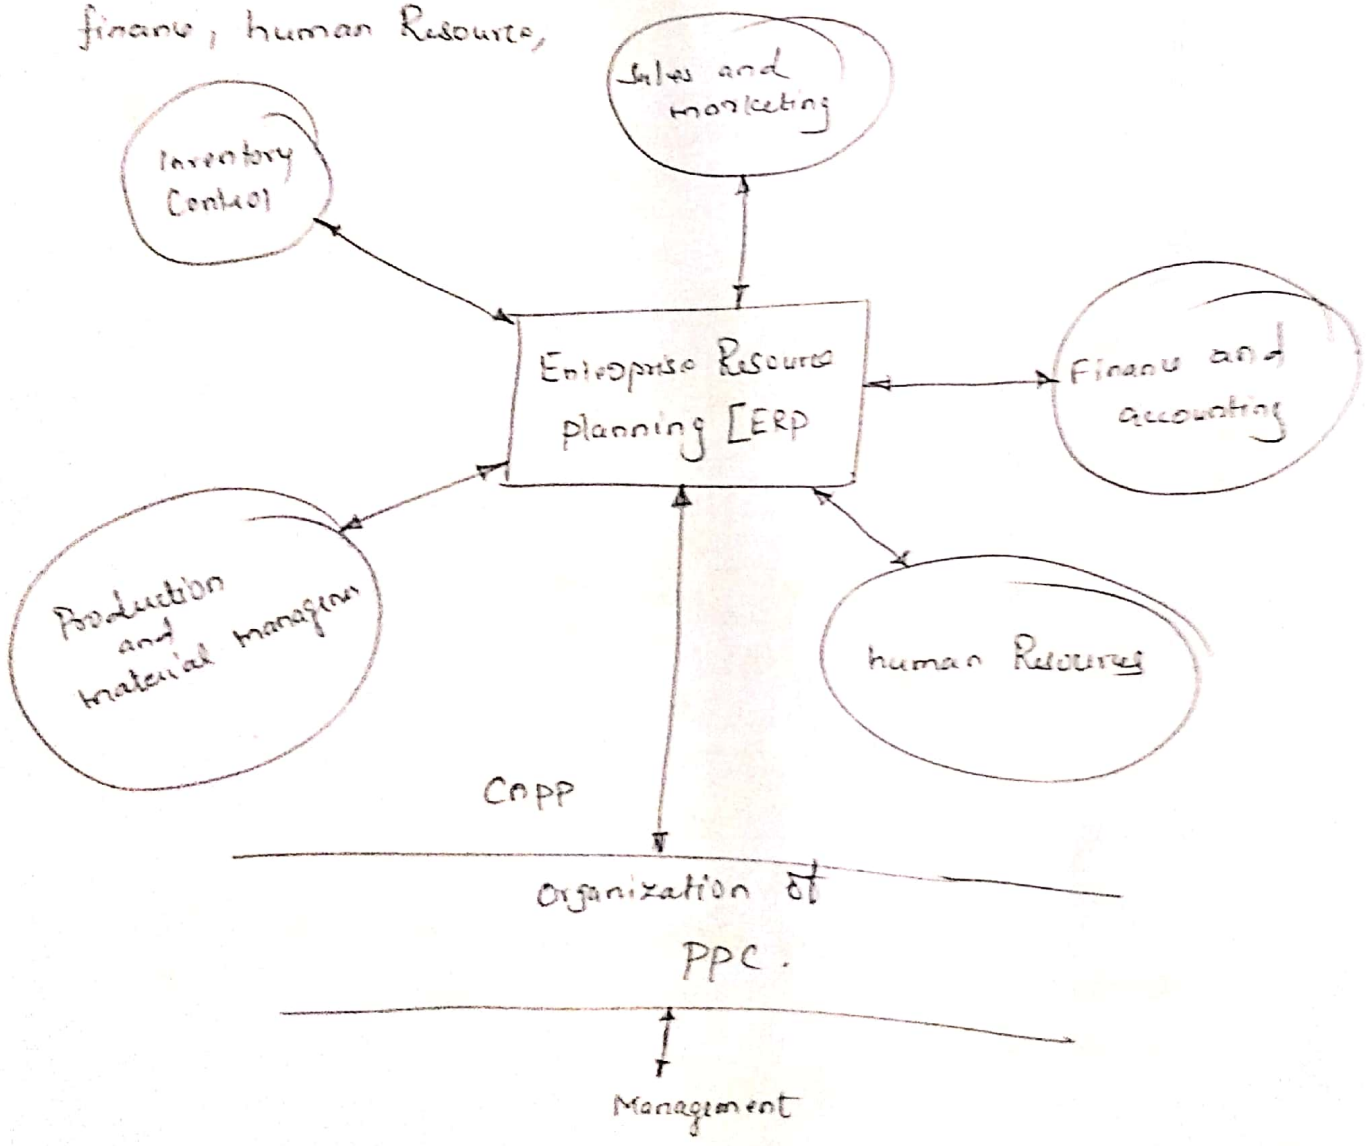 finance, human Resource,
Sales and
marketing
Inventory
Control
Enterprise Resource
planning [ERP
Finance and
accounting
Production
and
material managemen
human Resources
CAPP
Organization of
PPC.
Management